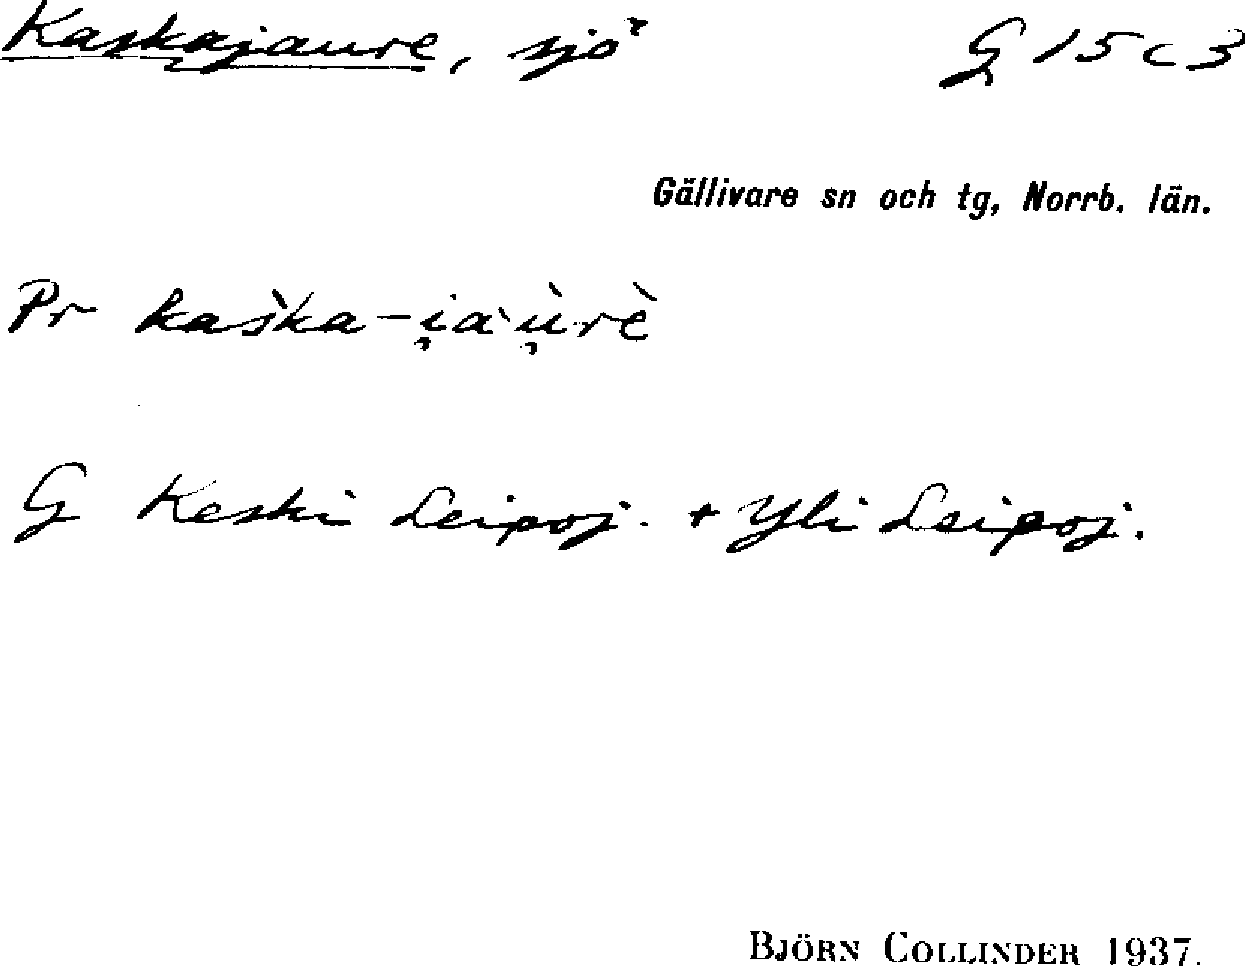 Kaskajaure, sjö G 15 c 3
Gällivare sn och tg, Norrb. län.
Pr kas̀ka-i̯a`ù̯rè
G Keski Leipoj. + Yli Leipoj.
BJÖRN COLLINDER 1937.